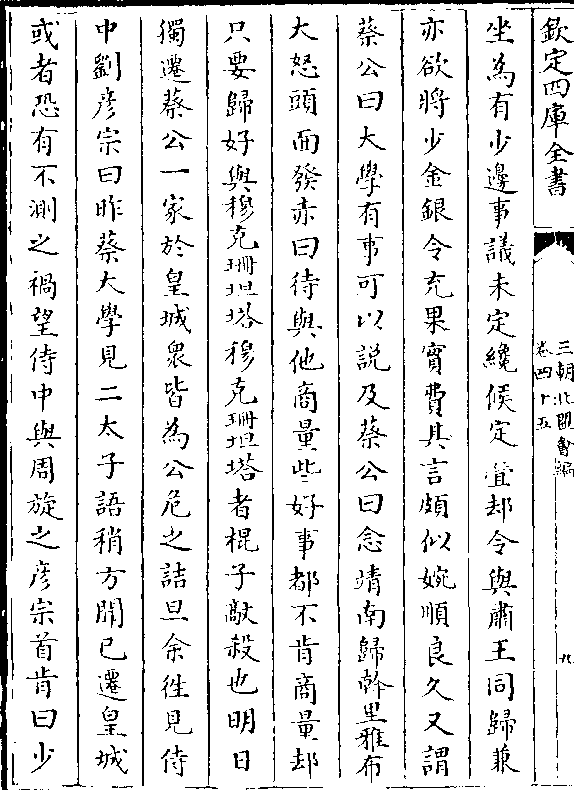 欽定四庫全書
三朝北盟會編
卷四十五
九
坐為有少邊事議未定纔候定疊却令與肅王同歸兼
亦欲將少金銀令充果實費其言頗似婉順良久又謂
蔡公曰大學有事可以說及蔡公曰念靖南歸幹里雅布
大怒頭面發赤曰待與他商量些好事都不肯商量却
只要歸好與穆克珊坦塔穆克珊坦塔者棍子敲殺也明日
獨遷蔡公一家於皇城衆皆為公危之詰旦余徃見侍
中劉彦宗曰昨蔡大學見二太子語稍方聞已遷皇城
或者恐有不測之禍望侍中與周旋之彦宗首肯曰少